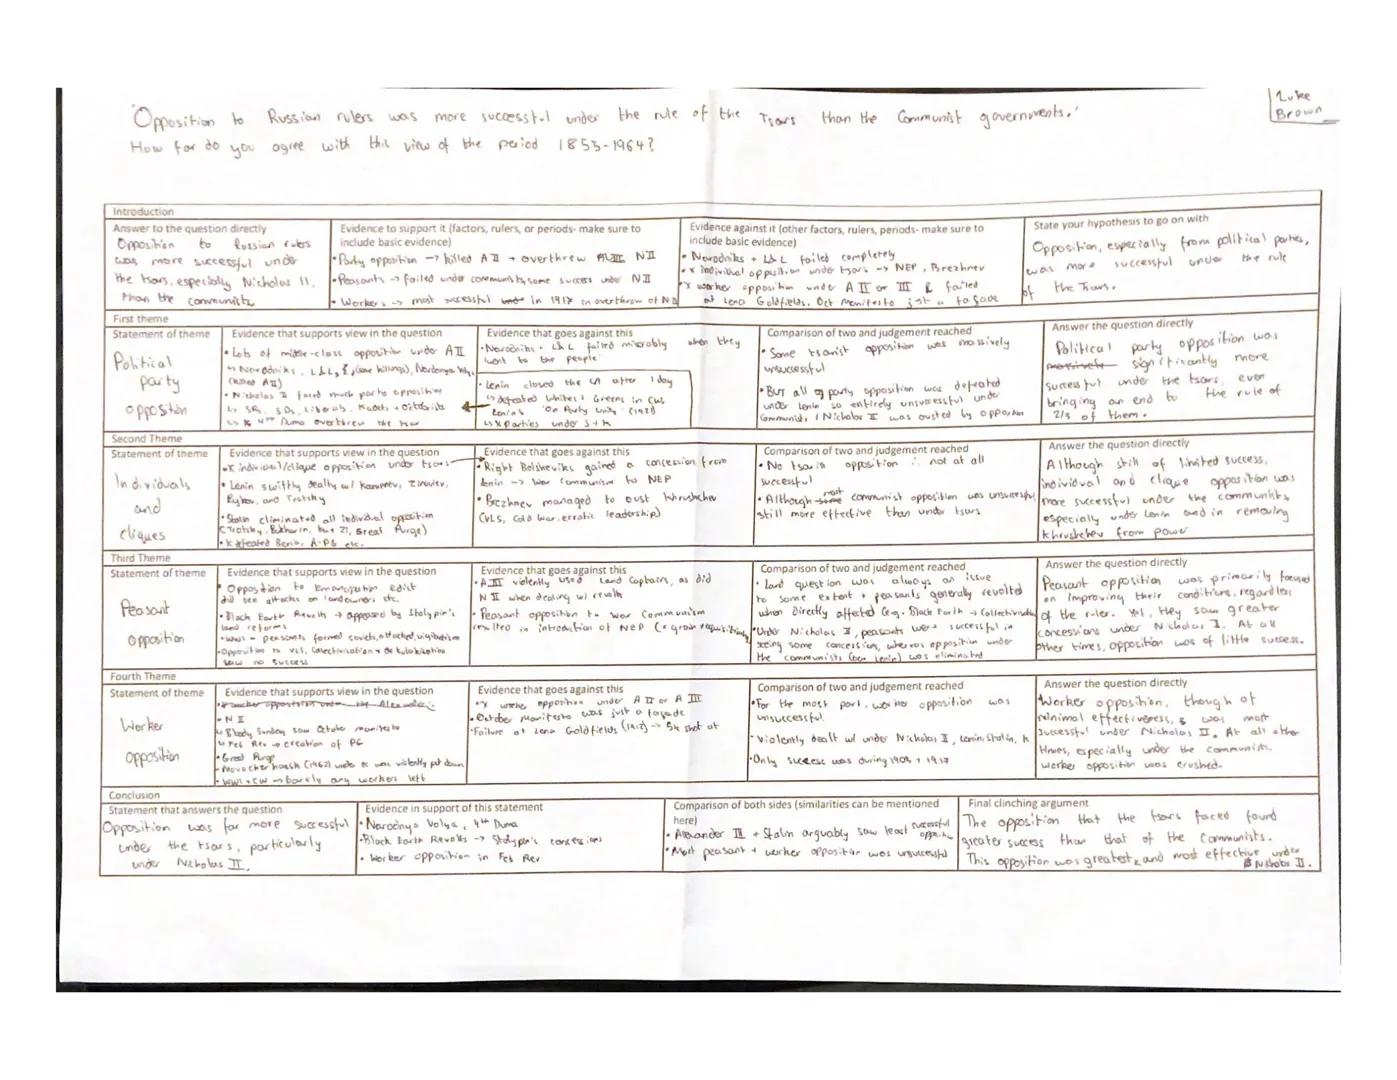 Luke
Brown
'Opposition to Russian rulers was more successful under the rule of the Tsars than the Communist governments.'
How far do you agree with this view of the period 1855-1964?
Introduction
Answer to the question directly
Opposition to Russian rulers
was more successful under
the tsars, especially Nicholas II,
than the communists
Evidence to support it (factors, rulers, or periods- make sure to
include basic evidence)
• Party opposition → killed AII + overthrew NII
• Peasants → failed under communists, some success under NII
• Workers → most successful in 1917 in overthrow of NII
Evidence against it (other factors, rulers, periods- make sure to
include basic evidence)
• Narodniks + L&L failed completely
• x individual opposition under tsars → NEP, Brezhnev
• x worker opposition under AII or III & failed
at Lena Goldfields. Oct Manifesto just a facade
State your hypothesis to go on with
Opposition, especially from political parties,
was more successful under the rule
of the Tsars.
First theme
Statement of theme
Political
party
opposition
Evidence that supports view in the question
• Lots of middle-class opposition under AII
↳ Narodniks, L&L, (some killings), Narodnaya Volya
(killed AII)
• Nicholas II faced much party opposition
↳ SRs, SDs, Liberals, Kadets + Octobrists
↳ 4th Duma overthrew the tsar
Evidence that goes against this
• Narodniks + L&L failed miserably when they
'went to the people'
• Lenin closed the CA after 1 day
↳ defeated Whites + Greens in CW
Lenin's 'On Party Unity' (1921)
↳ x parties under S + K
Comparison of two and judgement reached
• Some tsarist opposition was massively
unsuccessful
• BUT all party opposition was defeated
under Lenin so entirely unsuccessful under
Communists / Nicholas II was ousted by opposition
Answer the question directly
Political party opposition was
massively significantly more
successful under the tsars, even
bringing an end to the rule of
2/3 of them.
Second Theme
Statement of theme
Individuals
and
cliques
Evidence that supports view in the question
• x individual/clique opposition under tsars
• Lenin swiftly dealt w/ Kamenev, Zinoviev,
Rykov, and Trotsky
• Stalin eliminated all individual opposition
(Trotsky, Bukharin, Great Purge)
• K defeated Beria, A-PG etc.
Evidence that goes against this
• Right Bolsheviks gained a concession from
Lenin → War Communism to NEP
• Brezhnev managed to oust Khrushchev
(VLS, Cold War, erratic leadership)
Comparison of two and judgement reached
• No tsarist opposition ∴ not at all
successful
• Although some most communist opposition was unsuccessful,
still more effective than under tsars
Answer the question directly
Although still of limited success,
individual and clique opposition was
more successful under the communists,
especially under Lenin and in removing
Khrushchev from power
Third Theme
Statement of theme
Peasant
opposition
Evidence that supports view in the question
• Opposition to Emancipation Edict
did see attacks on landowners etc.
• Black Earth Revolts → appeased by Stolypin's
land reforms
• WWI - peasants formed soviets, attacked,
• Opposition to VLS, Collectivisation + dekulakisation
saw no success
Evidence that goes against this
• AIII violently used Land Captains, as did
NII when dealing w/ revolts
• Peasant opposition to War Communism
resulted in introduction of NEP (x grain requisitioning)
Comparison of two and judgement reached
• Land question was always an issue
to some extent + peasants generally revolted
when directly affected (e.g. Black Earth + Collectivisation)
• Under Nicholas II, peasants were successful in
seeing some concessions, whereas opposition under
the communists (bar Lenin) was eliminated
Answer the question directly
Peasant opposition was primarily focused
on improving their conditions, regardless
of the ruler. Yet, they saw greater
concessions under Nicholas II. At all
other times, opposition was of little success.
Fourth Theme
Statement of theme
Worker
opposition
Evidence that supports view in the question
• NII
↳ Bloody Sunday saw October manifesto
↳ Feb Rev → creation of PG
• Great Purge
• Novocherkassk (1962) was violently put down
• WWI + CW → barely any workers left
Evidence that goes against this
• x worker opposition under AII or AIII
• October Manifesto was just a facade
• Failure at Lena Goldfields (1912) → shot at
Comparison of two and judgement reached
• For the most part, worker opposition was
unsuccessful.
• Violently dealt w/ under Nicholas II, Lenin, Stalin, K
• Only success was during 1905 + 1917
Answer the question directly
Worker opposition, though of
minimal effectiveness, was most
successful under Nicholas II. At all other
times, especially under the communists,
worker opposition was crushed.
Conclusion
Statement that answers the question
Opposition was far more successful
under the tsars, particularly
under Nicholas II.
Evidence in support of this statement
• Narodnya Volya, 4th Duma
• Black Earth Revolts → Stolypin's concessions
• Worker opposition in Feb Rev
Comparison of both sides (similarities can be mentioned
here)
• Alexander III + Stalin arguably saw least successful opposition
• Most peasant + worker opposition was unsuccessful
Final clinching argument
The opposition that the tsars faced found
greater success than that of the Communists.
This opposition was greatest, and most effective under
Nicholas II.